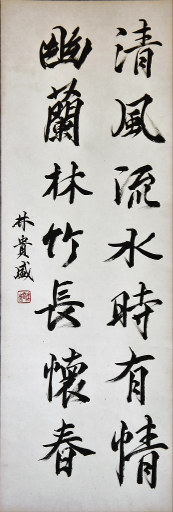 清風流水時有情
幽蘭林竹長懷春
林貴盛